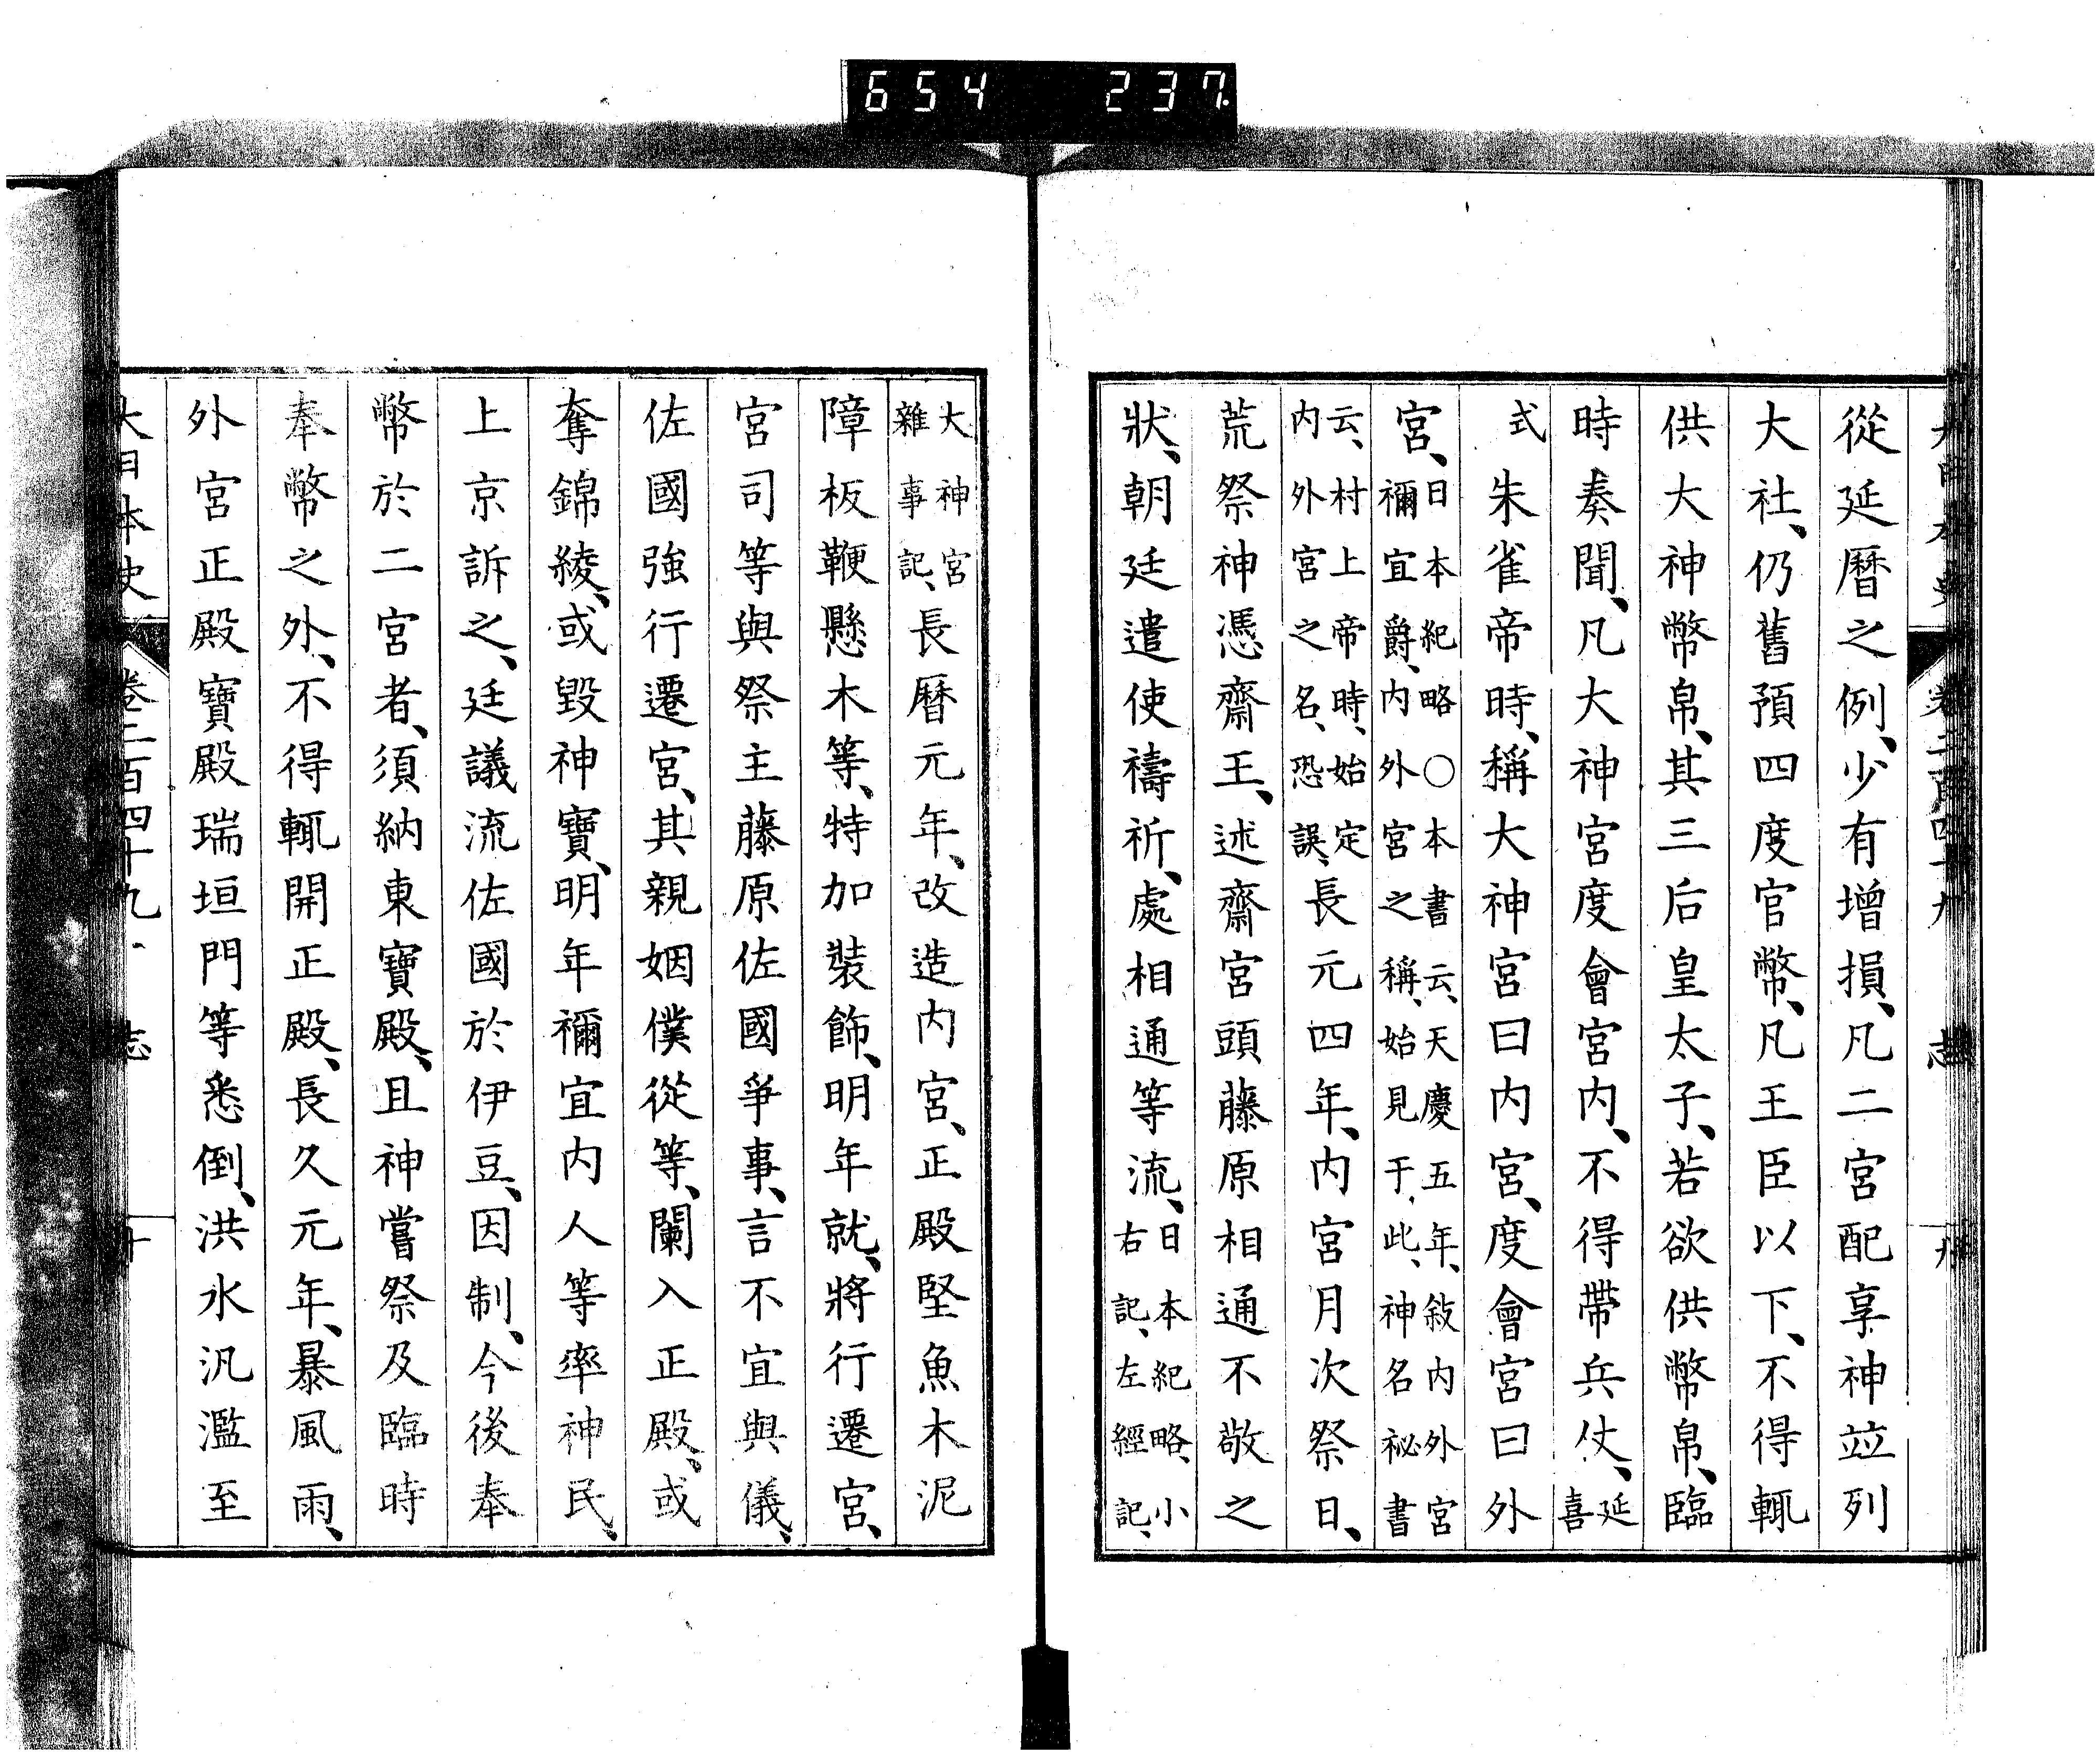 654 237
從延曆之例、少有增損、凡二宮配享神竝列
大社、仍舊預四度官幣、凡王臣以下、不得輒
供大神幣帛、其三后皇太子、若欲供幣帛、臨
時奏聞、凡大神宮度會宮內、不得帶兵仗、延喜
式朱雀帝時、稱大神宮曰内宮、度會宮曰外
宮、日本紀略〇本書云、天慶五年、敍内外宮
禰宜爵、内外宮之稱、始見于此、神名祕書
云、村上帝時、始定
内外宮之名、恐誤、長元四年、内宮月次祭日、
荒祭神憑齋王、述齋宮頭藤原相通不敬之
狀、朝廷遣使禱祈、處相通等流、日本紀略、小
右記、左經記、
大神宮
雜事記、長曆元年、改造内宮、正殿堅魚木泥
障板鞭懸木等、特加裝飾、明年就、將行遷宮、
宮司等與祭主藤原佐國爭事、言不宜與儀、
佐國強行遷宮、其親姻僕從等、闌入正殿、或
奪錦綾、或毀神寶、明年禰宜内人等率神民、
上京訴之、廷議流佐國於伊豆、因制、今後奉
幣於二宮者、須納東寶殿、且神嘗祭及臨時
奉幣之外、不得輒開正殿、長久元年、暴風雨、
外宮正殿寶殿瑞垣門等悉倒、洪水汎濫至
大日本史 卷二百四十九 志